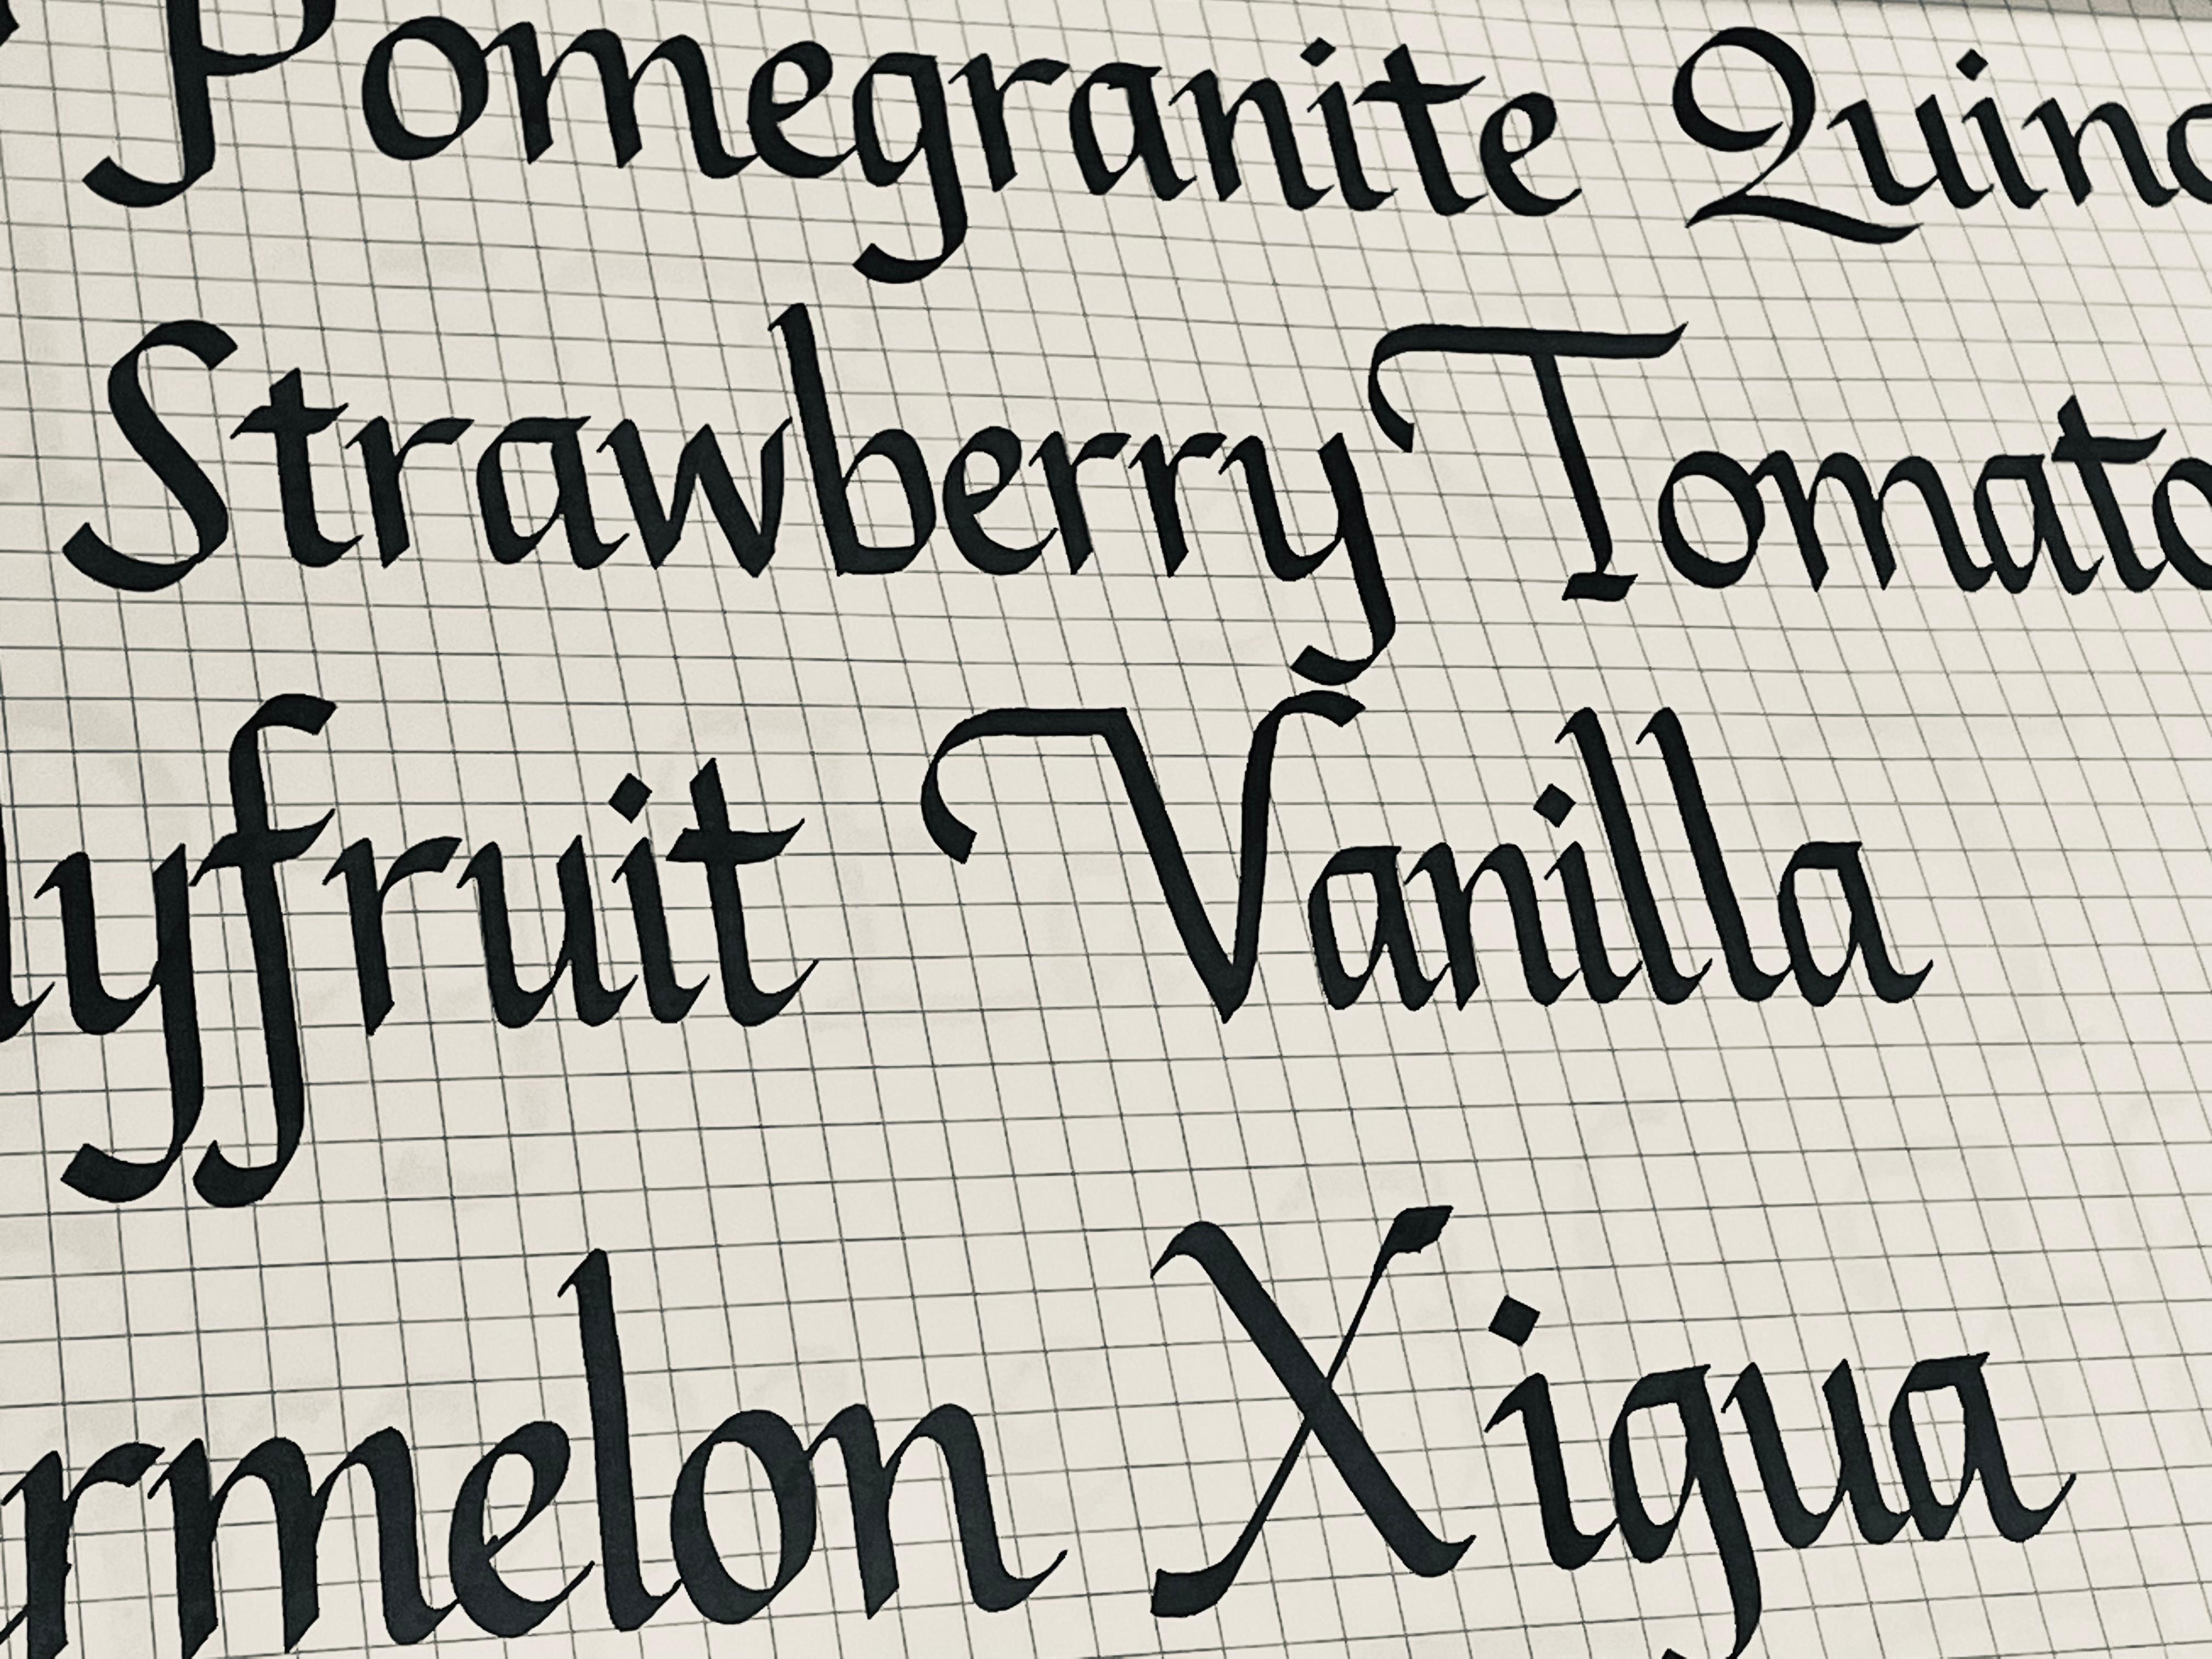 Pomegranite Quinc
Strawberry Tomato
lyfruit Vanilla
rmelon Xigua